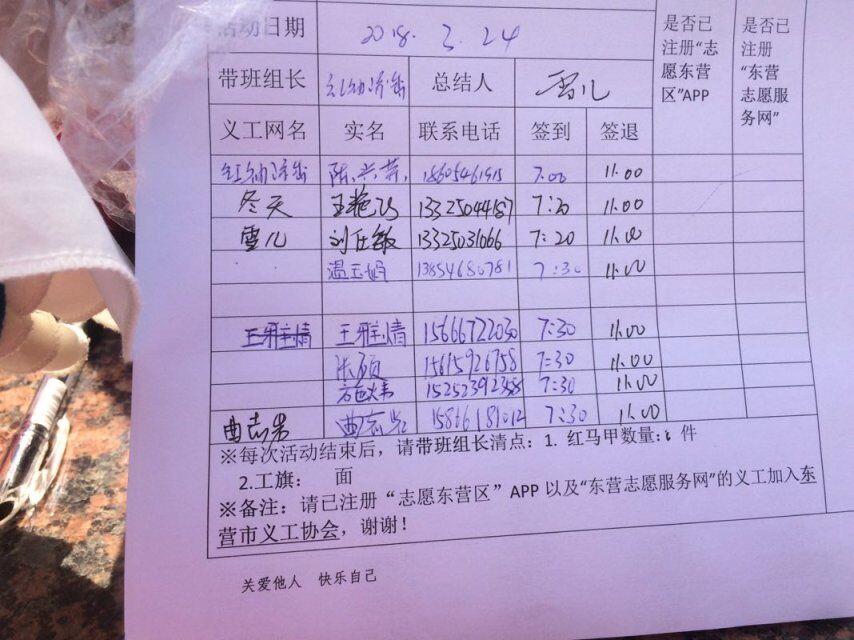 活动日期 2018.3.24
是否已注册“志愿东营区”APP
是否已注册“东营志愿服务网”
带班组长 总结人 雪儿
义工网名 实名 联系电话 签到 签退
陈兴萍 18605461915 7:00 11.00
冬天 13325044187 7:20 11.00
雪儿 刘仕敏 13325031066 7:20 11.00
温玉婷 13854680781 7:30 11.00
王雅倩 王雅倩 15666722030 7:30 11.00
张硕 15615926758 7:30 11.00
15252392358 7:30 11.00
曲志岩 曲志岩 15866181012 7:30 11.00
※每次活动结束后，请带班组长清点：1. 红马甲数量：6 件
2.工旗： 面
※备注：请已注册“志愿东营区”APP 以及“东营志愿服务网”的义工加入东
营市义工协会，谢谢！
关爱他人 快乐自己